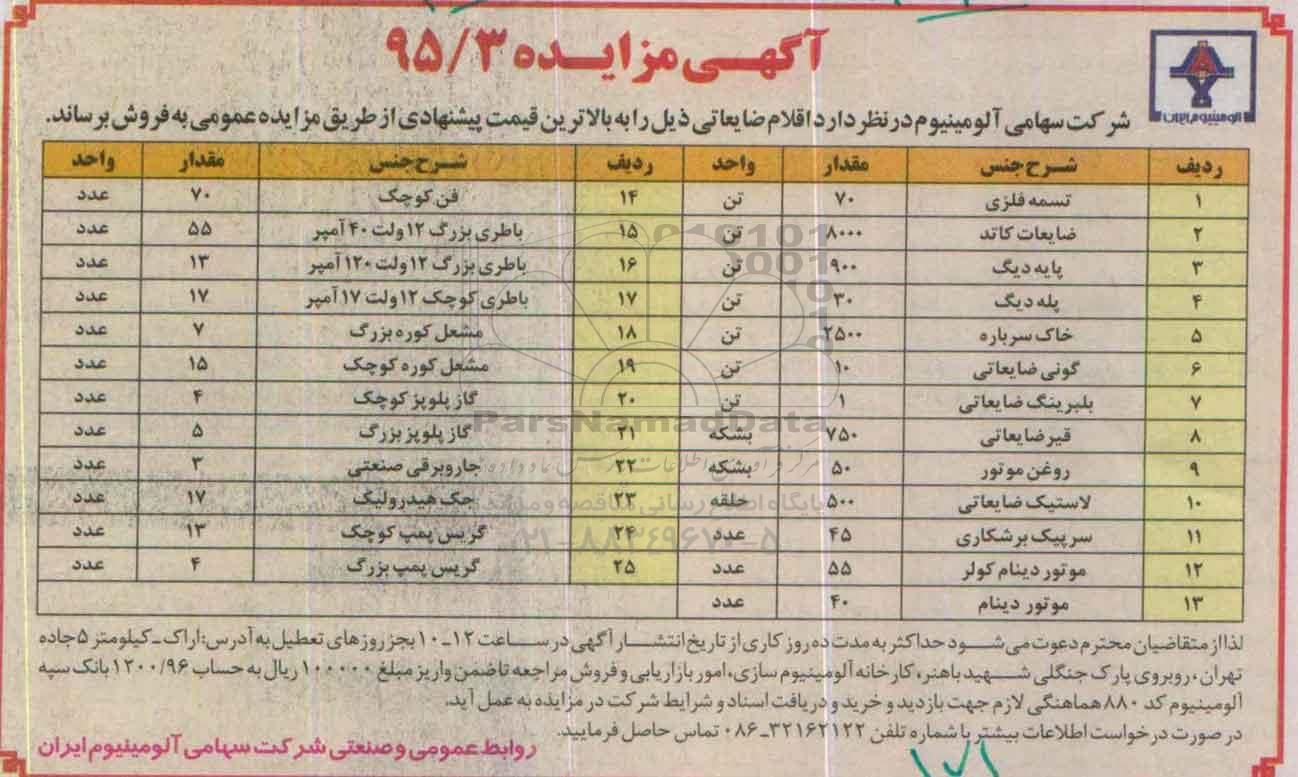 آگهی مزایده ۹۵/۳
آلومینیوم ایران
شرکت سهامی آلومینیوم در نظر دارد اقلام ضایعاتی ذیل را به بالاترین قیمت پیشنهادی از طریق مزایده عمومی به فروش برساند.
ردیف شرح جنس مقدار واحد ردیف شرح جنس مقدار واحد
۱ تسمه فلزی ۷۰ تن ۱۴ فن کوچک ۷۰ عدد
۲ ضایعات کاتد ۸۰۰۰ تن ۱۵ باطری بزرگ ۱۲ ولت ۴۰ آمپر ۵۵ عدد
۳ پایه دیگ ۹۰۰ تن ۱۶ باطری بزرگ ۱۲ ولت ۱۲۰ آمپر ۱۳ عدد
۴ پله دیگ ۳۰ تن ۱۷ باطری کوچک ۱۲ ولت ۱۷ آمپر ۱۷ عدد
۵ خاک سرباره ۲۵۰۰ تن ۱۸ مشعل کوره بزرگ ۷ عدد
۶ گونی ضایعاتی ۱۰ تن ۱۹ مشعل کوره کوچک ۱۵ عدد
۷ بلبرینگ ضایعاتی ۱ تن ۲۰ گاز پلوپز کوچک ۴ عدد
۸ قیر ضایعاتی ۷۵۰ بشکه ۲۱ گاز پلوپز بزرگ ۵ عدد
۹ روغن موتور ۵۰ بشکه ۲۲ جاروبرقی صنعتی ۳ عدد
۱۰ لاستیک ضایعاتی ۵۰۰ حلقه ۲۳ جک هیدرولیک ۱۷ عدد
۱۱ سرپیک برشکاری ۴۵ عدد ۲۴ گریس پمپ کوچک ۱۳ عدد
۱۲ موتور دینام کولر ۵۵ عدد ۲۵ گریس پمپ بزرگ ۴ عدد
۱۳ موتور دینام ۴۰ عدد
ParsNamadData
پایگاه اطلاع رسانی مناقصه و مزایده
۰۲۱-۸۸۳۴۹۶۷۰-۵
لذا از متقاضیان محترم دعوت می شود حداکثر به مدت ده روز کاری از تاریخ انتشار آگهی در ساعت ۱۲ـ۱۰ بجز روزهای تعطیل به آدرس: اراک ـ کیلومتر ۵ جاده
تهران، روبروی پارک جنگلی شهید باهنر، کارخانه آلومینیوم سازی، امور بازاریابی و فروش مراجعه تا ضمن واریز مبلغ ۱۰۰۰۰۰۰ ریال به حساب ۱۲۰۰/۹۶ بانک سپه
آلومینیوم کد ۸۸۰ هماهنگی لازم جهت بازدید و خرید و دریافت اسناد و شرایط شرکت در مزایده به عمل آید.
در صورت درخواست اطلاعات بیشتر با شماره تلفن ۳۲۱۶۲۱۲۲ـ۰۸۶ تماس حاصل فرمایید.
روابط عمومی و صنعتی شرکت سهامی آلومینیوم ایران
۱۷۱